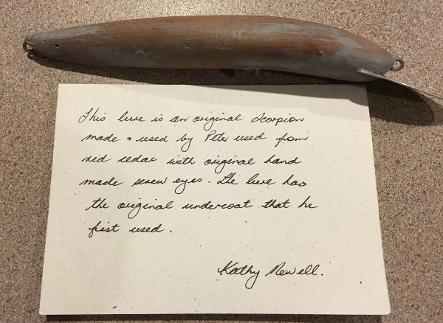 This lure is an original Scorpion
made & used by Peter used from
red cedar with original hand
made screw eyes. The lure has
the original undercoat that he
first used.
Kathy Newell.